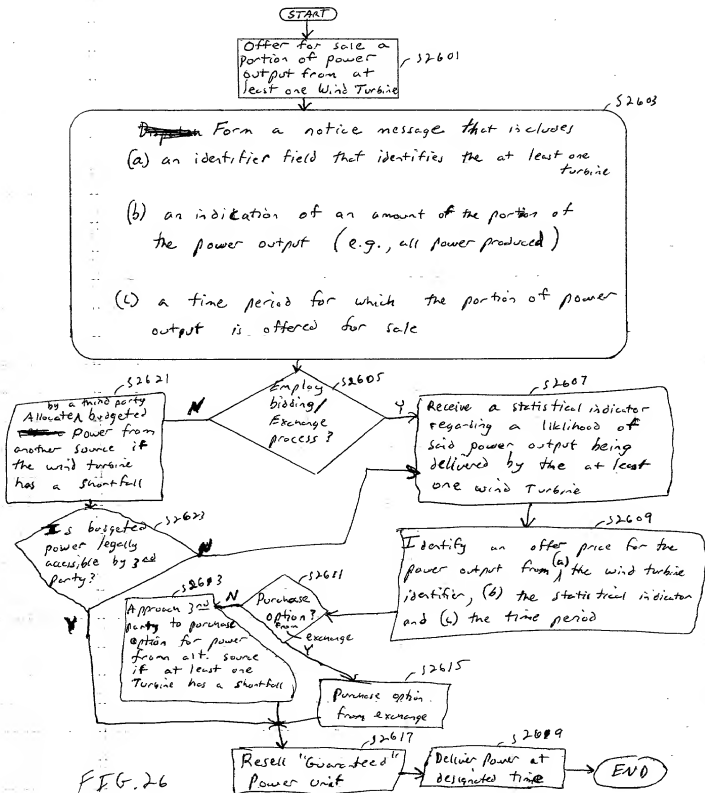 START
Offer for sale a
portion of power
output from at
least one Wind Turbine
S2601
S2603
Form a notice message that includes
(a) an identifier field that identifies the at least one
turbine
(b) an indication of an amount of the portion of
the power output (e.g., all power produced)
(c) a time period for which the portion of power
output is offered for sale
S2621
by a third party
Allocate budgeted
Power from
another source if
the wind turbine
has a shortfall
N
Employ
bidding/
Exchange
process?
S2605
Y
S2607
Receive a statistical indicator
regarding a liklihood of
said power output being
delivered by the at least
one wind Turbine
S2623
Is budgeted
power legally
accessible by 3rd
Party?
N
Y
S2609
Identify an offer price for the
power output from (a) the wind turbine
identifier, (b) the statistical indicator
and (c) the time period
Purchase
option?
from
exchange
N
Y
Approach 3rd
party to purchase
option for power
from alt. source
if at least one
Turbine has a shortfall
S2615
Purchase option
from exchange
S2617
Resell "Guaranteed"
Power unit
Deliver Power at
designated time
END
FIG. 26